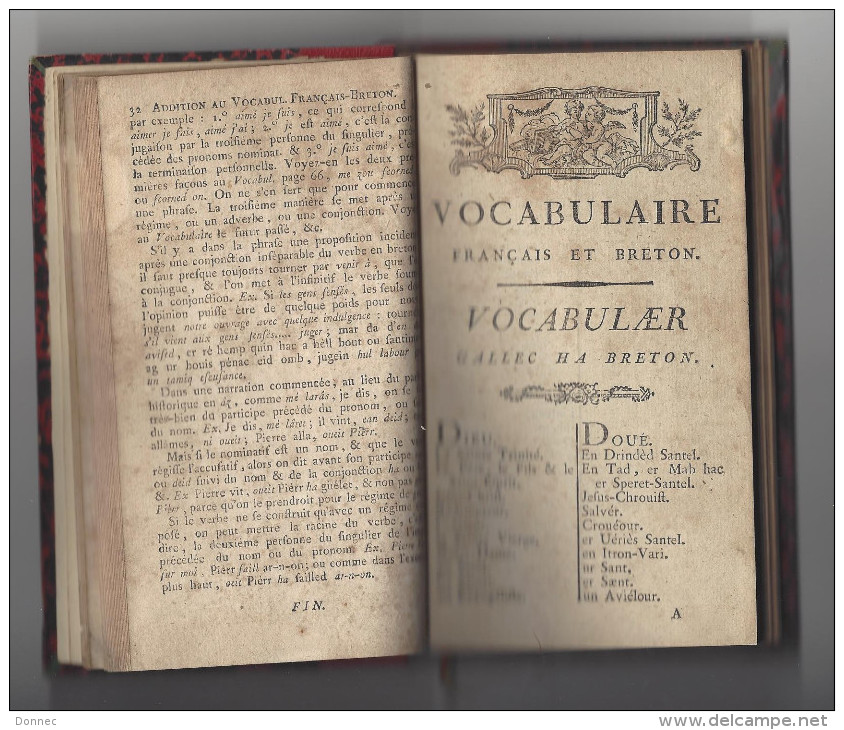 32 ADDITION AU VOCABUL. FRANÇAIS-BRETON.
par exemple : 1.º aimé je suis, ce qui correspond
aimer je fais, aimé j'ai ; 2.º je est aimé, c'est la con-
jugaison par la troisième personne du singulier, pré-
cédée des pronoms nominat. & 3.º je suis aimé, c'est
la terminaison personnelle. Voyez-en les deux pre-
mières façons au Vocabul. page 66, me zou scorned
ou scorned on. On ne s'en sert que pour commencer
une phrase. La troisième manière se met après
régime, ou un adverbe, ou une conjonction. Voyez
au Vocabulaire le futur passé, &c.
S'il y a dans la phrase une proposition incidente
après une conjonction inséparable du verbe en breton
il faut presque toujours tourner par venir à, que l'on
conjugue, & l'on met à l'infinitif le verbe soumis
à la conjonction. Ex. Si les gens sensés, les seuls dont
l'opinion puisse être de quelque poids pour nous
jugent notre ouvrage avec quelque indulgence : tournez
s'il vient aux gens sensés..... juger ; mar da d'en
avised, er ré hemp quin hac a hell bout ou santimant
ag ur bouis pénac eid omb, jugein hul labour
un tamiq escusance.
Dans une narration commencée, au lieu du passé
historique en az, comme me laras, je dis, on se sert
très-bien du participe précédé du pronom, ou
du nom. Ex. Je dis, mé láret ; il vint, ean deid ;
allâmes, ni oueit ; Pierre alla, oueit Piérr.
Mais si le nominatif est un nom, & que le verbe
régisse l'accusatif, alors on dit avant son participe
ou deid suivi du nom & de la conjonction ha ou
&. Ex Pierre vit, oueit Piérr ha guélet, & non pas
Piérr, parce qu'on le prendroit pour le régime de
Si le verbe ne se construit qu'avec un régime
posé, on peut mettre la racine du verbe, c'est-à-
dire, la deuxième personne du singulier de l'impératif
précédée du nom ou du pronom. Ex. Pierre
sur moi, Piérr saill ar-n-on; ou comme dans l'exemple
plus haut, oeit Piérr ha sailled ar-n-on.
FIN.
VOCABULAIRE
FRANÇAIS ET BRETON.
VOCABULÆR
GALLEC HA BRETON.
DIEU. DOUÉ.
Trinité, En Drindèd Santel.
le Fils & le En Tad, er Mab hac
er Speret-Santel.
Jesus-Chrouist.
Salvér.
Crouéour.
Vierge, er Uériès Santel.
Dame, en Itron-Vari.
ur Sant.
er Sænt.
un Aviélour.
A
Donnec
delcampe.net